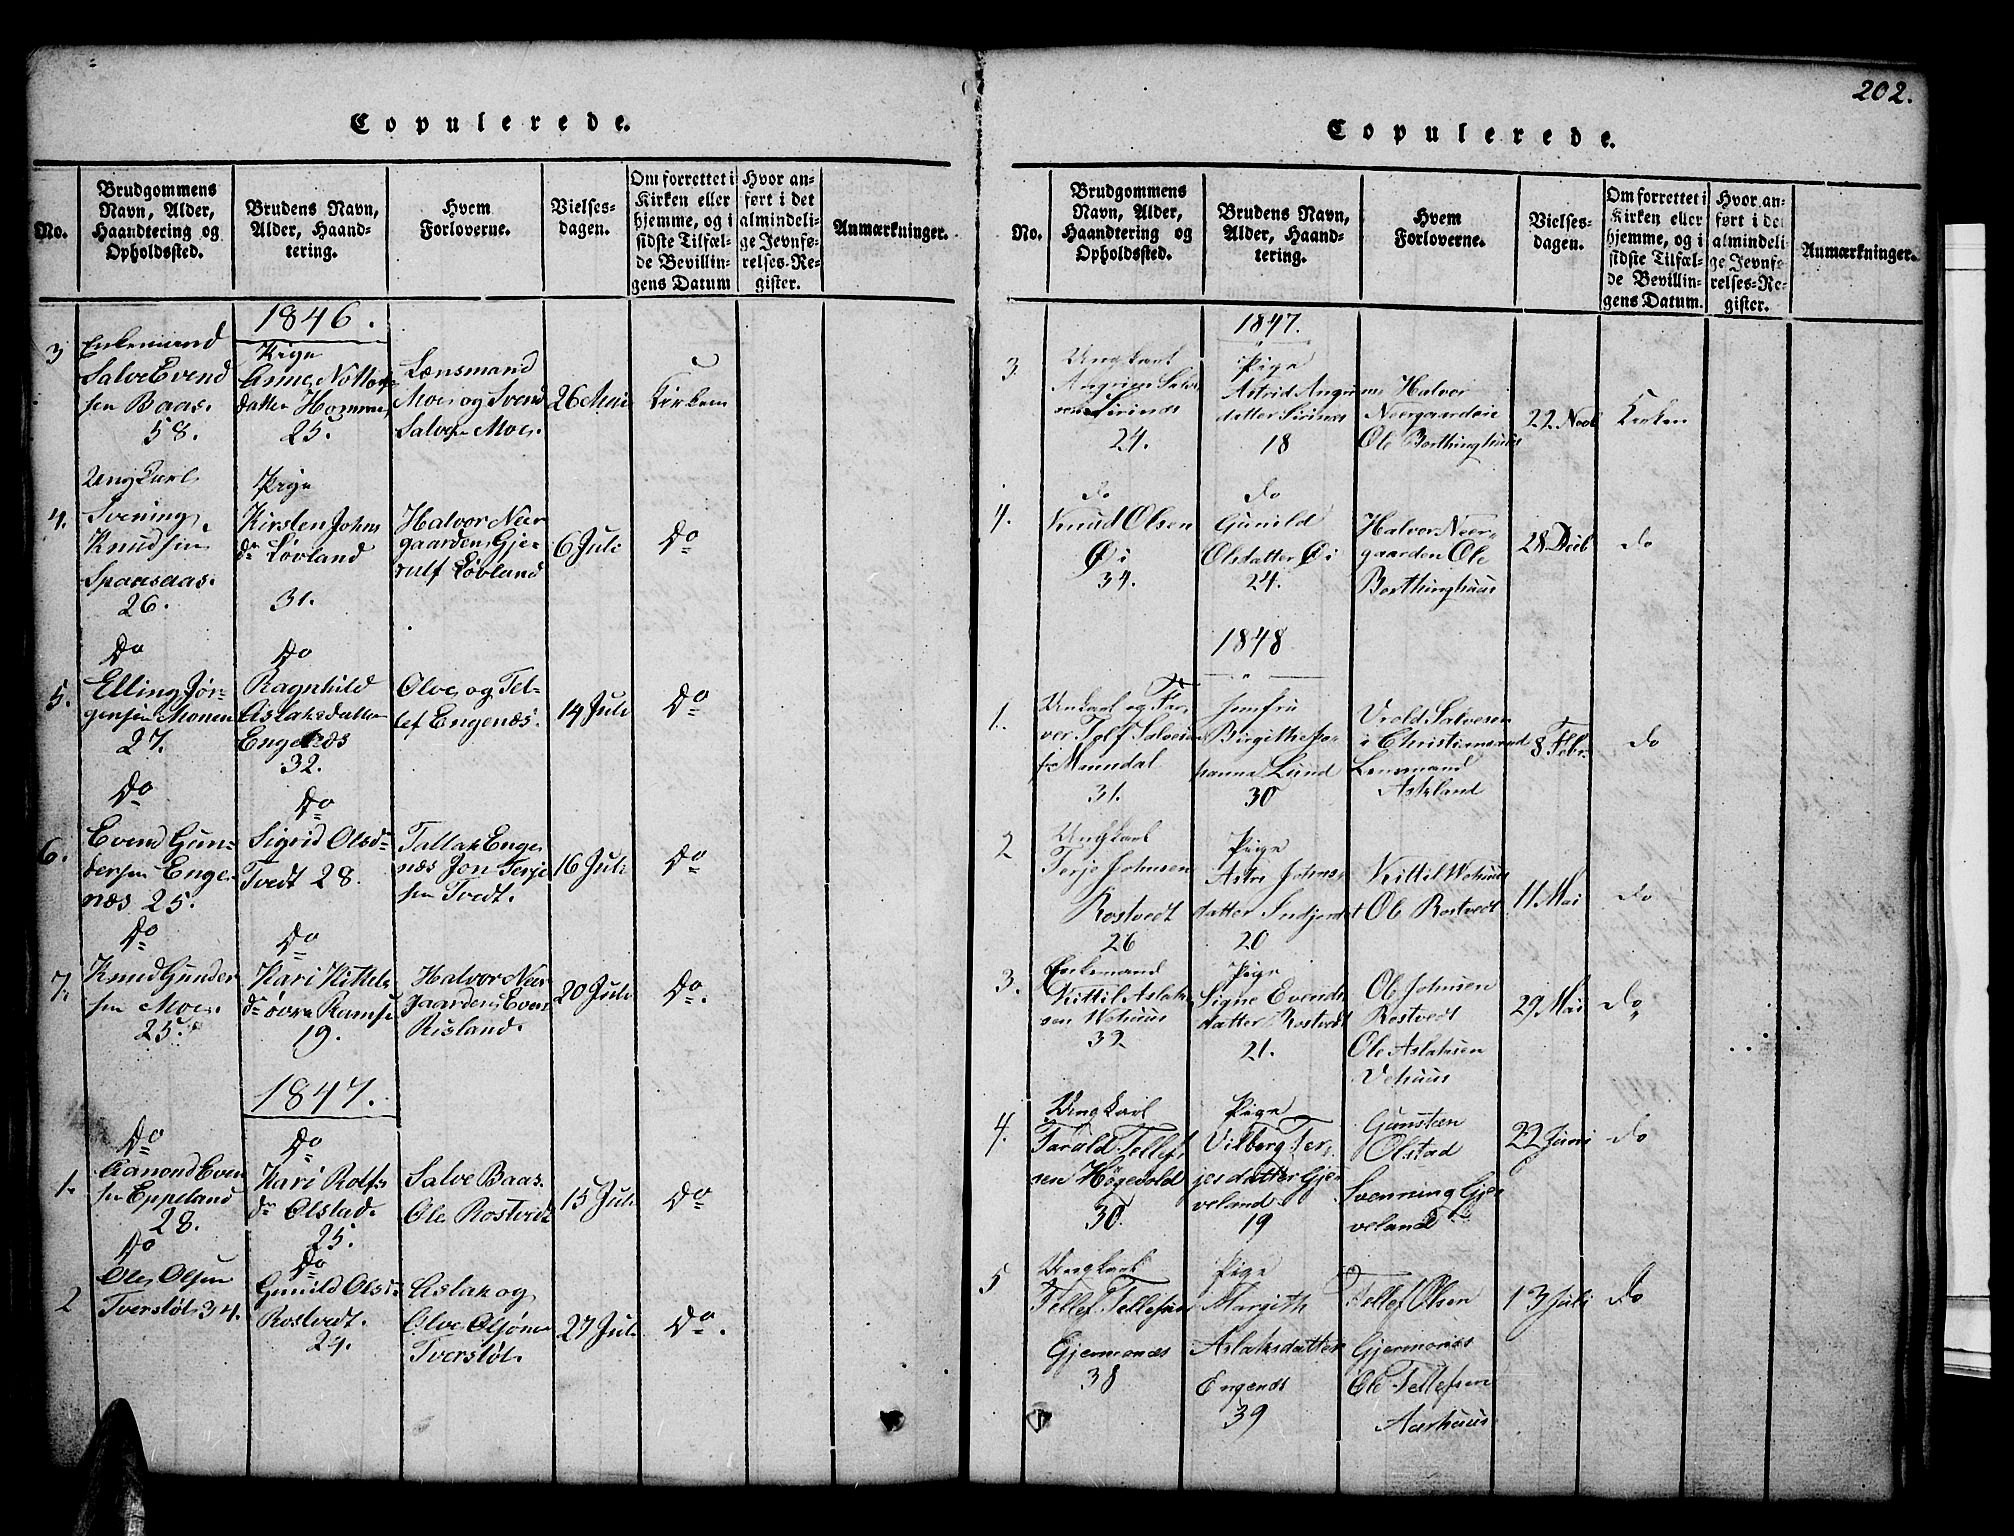 202.
Copulerede.
No.
Brudgommens
Navn, Alder,
Haandtering og
Opholdssted.
Brudens Navn,
Alder, Haand-
tering.
Hvem
Forloverne.
Vielses-
dagen.
Om forrettet i
Kirken eller
hjemme, og i
sidste Tilfæl-
de Bevillin-
gens Datum
Hvor an-
ført i det
almindeli-
ge Jevnfø-
relses-Re-
gister.
Anmærkninger.
1846.
3
Enkemand
Salve Evend
sen Baas.
58.
Pige
Anne
datter Homme
25.
Lænsmand
Moe og Svend
Salvesen Moe.
26 Mai
Kirken
4.
Ungkarl
Svening
Knudsen
Spaasaas.
26.
Pige
Kirsten Johns
dr Løvland
31.
Halvor Neer
gaarden Gje-
rulf Løvland
6 Juli
Do
5.
Do
Elling Jør-
gensen Monen
27.
Do
Ragnhild
Aslaksdatter
Engenæs
32.
Olve og Tel-
lef Engenæs.
14 Juli
Do
6.
Do
Evend Gun-
dersen Enge-
næs 25.
Do
Sigrid Olsdr
Tvedt 28.
Tallak Enge
næs Jon Terje
sen Tvedt.
16 Juli
Do
7.
Do
Knud Gunder
sen Moe.
25.
Do
Kari Kittels
dr øvre Ramse
19.
Halvor Neer
gaarden Even
Risland.
20 Juli
Do.
1847.
1.
Do
Aamond Even
sen Eppeland
28.
Do
Kari Rolfs
dr Olstad.
25.
Salve Baas.
Ole Rostvedt
15 Juli
Do
2
Do
Ole Olsen
Tversløt 34.
Do
Gunild Olsdr
Rostvedt.
24.
Aslak og
Olve Olsøn
Tversløt.
27 Juli
Do.
Copulerede.
No.
Brudgommens
Navn, Alder,
Haandtering og
Opholdssted.
Brudens Navn,
Alder, Haand-
tering.
Hvem
Forloverne.
Vielses-
dagen.
Om forrettet i
Kirken eller
hjemme, og i
sidste Tilfæl-
de Bevillin-
gens Datum.
Hvor an-
ført i det
almindeli-
ge Jevnfø-
relses-Re-
gister.
Anmærkninger.
1847.
3
Ungkarl
Angrim Salve
sen Sirinds
24.
Pige
Astrid Angrims
datter Sirinæs
18
Halvor
Neergaarden
Ole Borthinghuus
22 Novb
Kirken
4.
do
Knud Olsen
Øi
34.
do
Gunild
Olsdatter Øi
24.
Halvor Neer-
gaarden Ole
Borthinghuus
28 Decb
do
1848
1.
Unkarl og Far-
ver Tolf Salvesen
fr Manndal
31.
Jomfru
Birgithe Jo-
hanna Lund
30
Vrold Salvesen
i Christiansand
Lensmand
Askland
8 Febr
do
2
Ungkarl
Terje Johnsen
Rostvedt
26
Pige
Astri Johns-
datter Indjordet
20
Kittil Wehuus
Ole Rostvedt
11 Mai
do
3.
Enkemand
Kittil Aslak
sen Wehuus
32
Pige
Signe Evends
datter Rostvedt
21.
Ole Johnsen
Rostvedt
Ole Aslaksen
Vehuus
29 Mai
do
4.
Ungkarl
Tarald Tellef
sen Høgevold
30.
Pige
Vilborg Ter-
jesdatter Gje-
veland
19
Gunsten
Olstad
Svenning Gje
veland
22 Juni
do
5
Ungkarl
Tellef Tellefsen
Gjermonæs
38
Pige
Margith
Aslaksdatter
Engenæs
39
Tellef Olsen
Gjermonæs
Ole Tellefsen
Aarhuus
13 Juli
Do